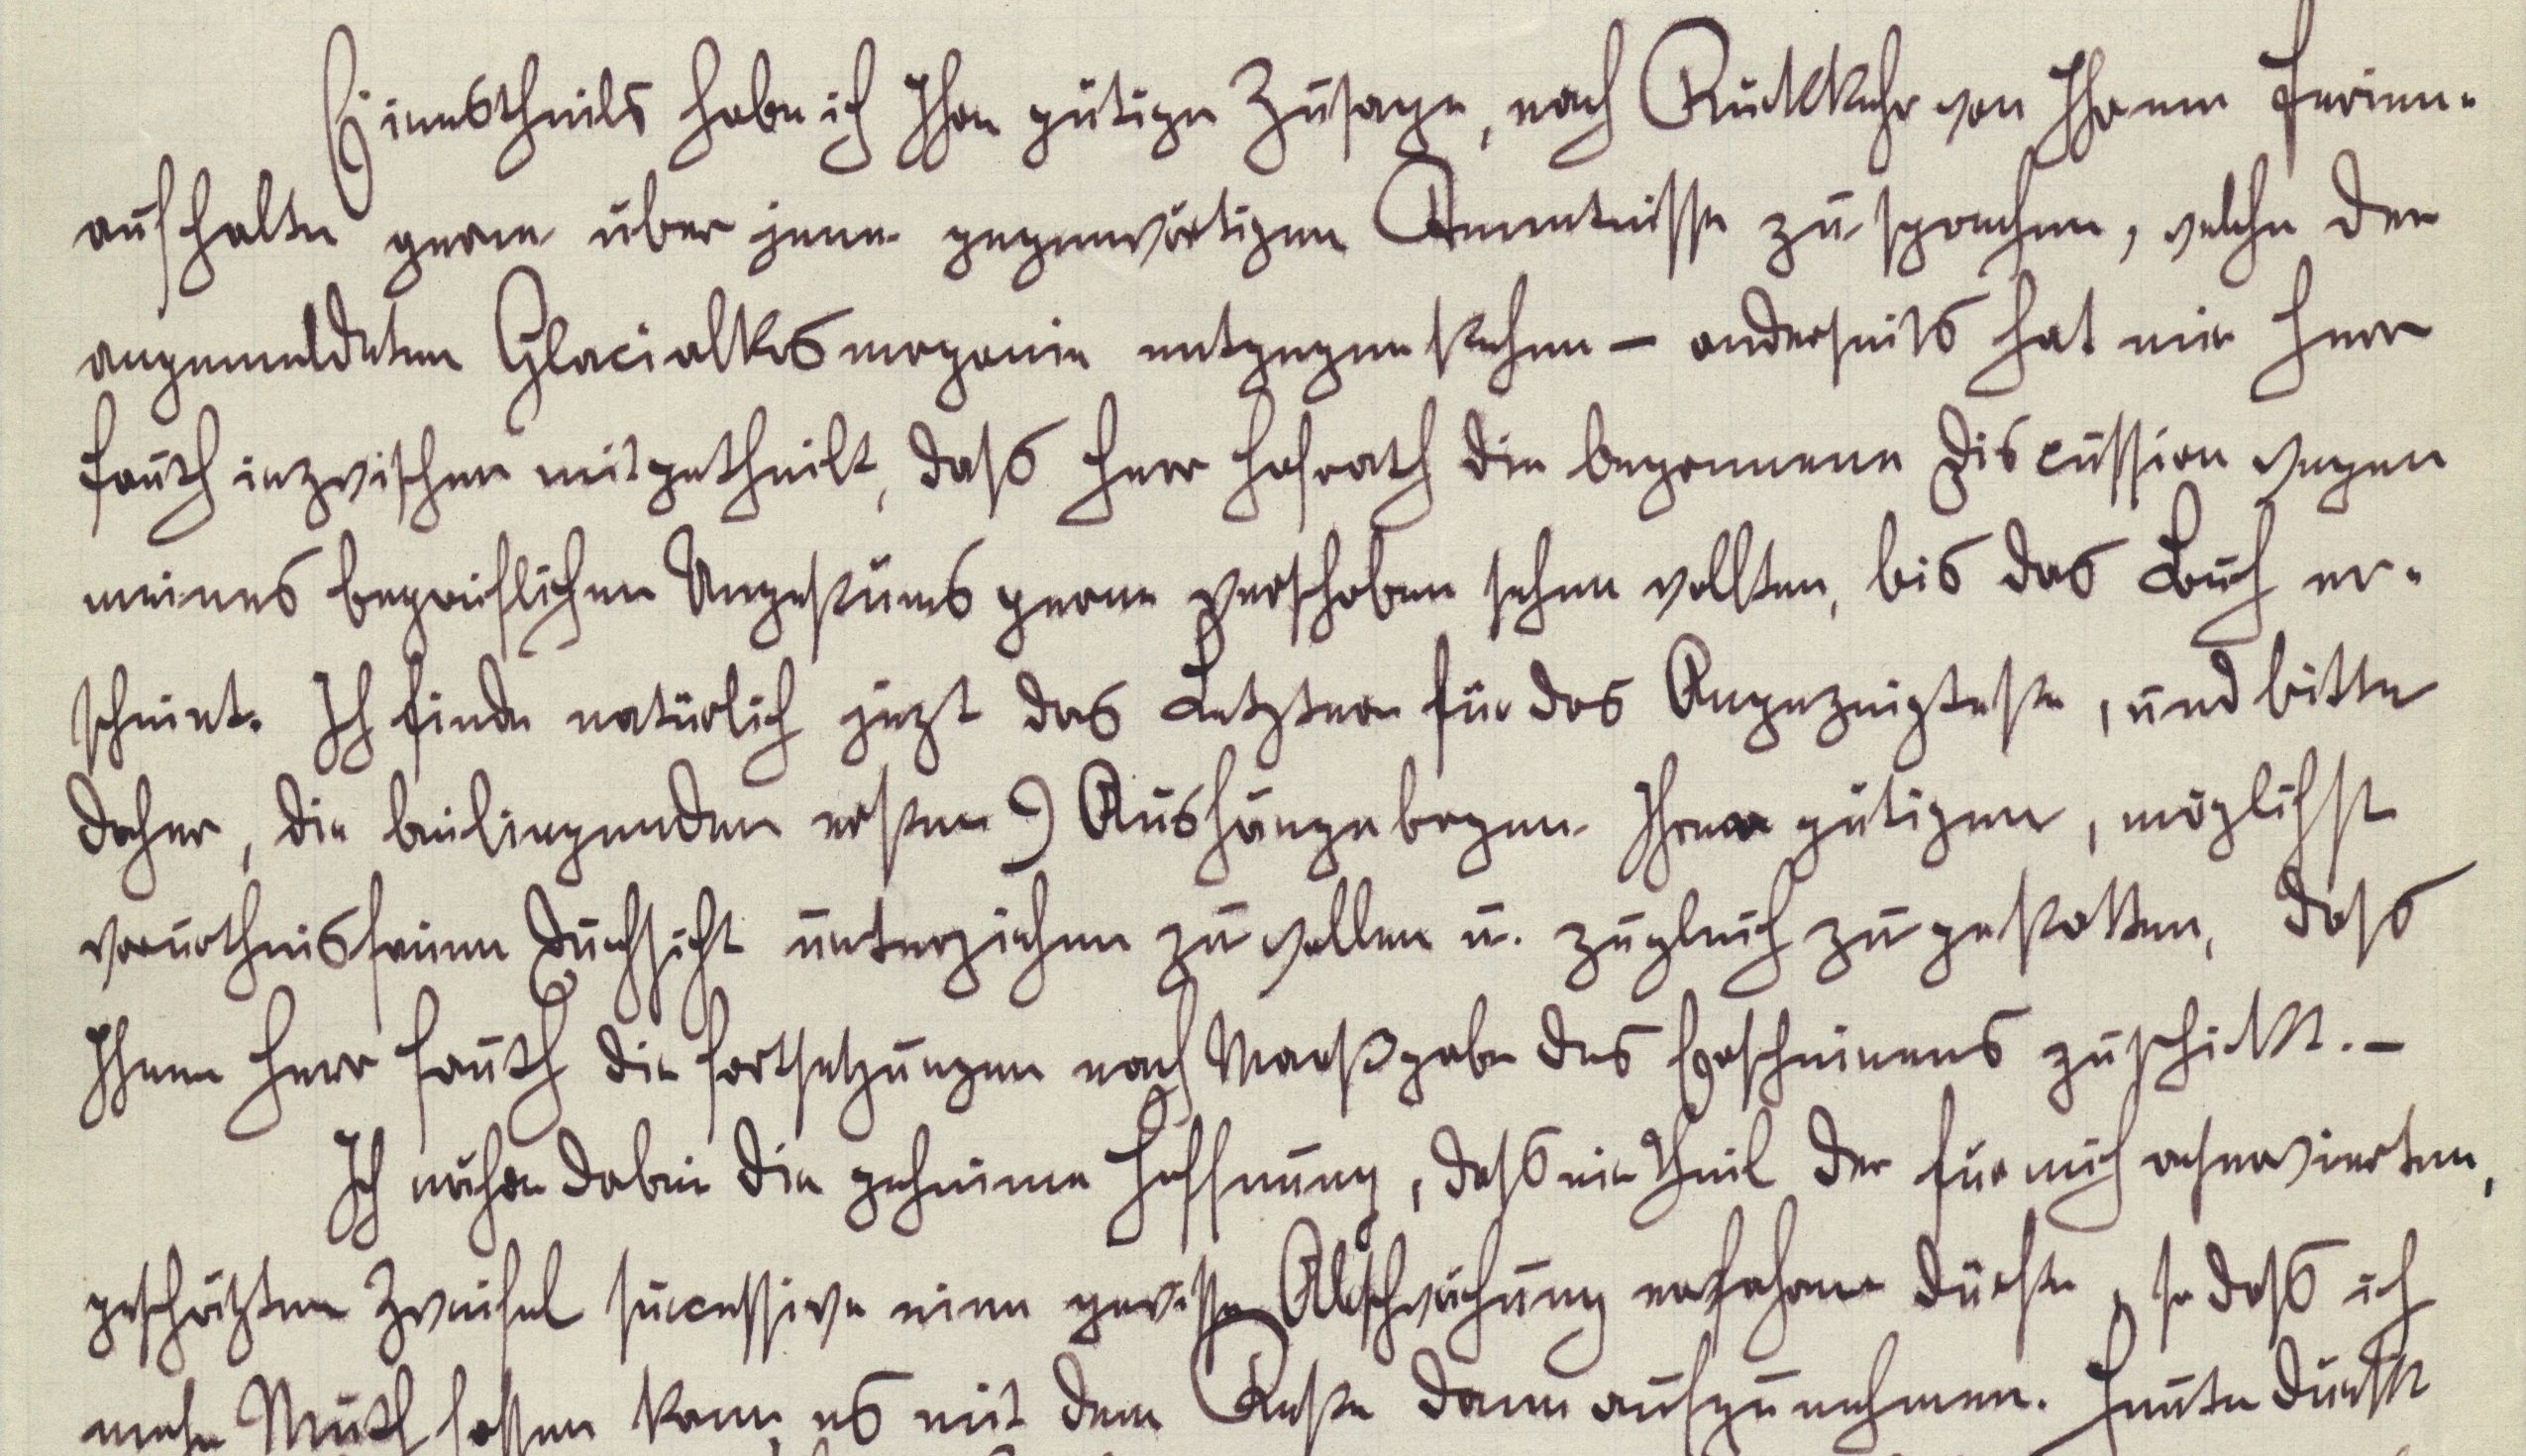 Einestheils habe ich Ihre gütige Zusage, nach Rückkehr von Ihrem Ferien-
aufhalte gerne über jene gegenwärtigen Kenntnisse zu sprechen, welche der
angemeldeten Glacialkosmogonie entgegenstehen – anderseits hat mir Herr
Fauth inzwischen mitgetheilt, dass Herr Hofrath die begonnene Discussion wegen
meines begreiflichen Ungestüms gerne verschoben sehen wollten, bis das Buch er-
scheint. Ich finde natürlich jezt das Letztere für das Angezeigteste, und bitte
daher, die beiliegenden ersten 9 Aushängebogen Ihrer gütigen, möglichst
vorurtheilsfreien Durchsicht unterziehen zu wollen u. zugleich zu gestatten, dass
Ihnen Herr Fauth die Fortsetzungen nach Maaßgabe des Erscheinens zuschickt. –
Ich nähre dabei die geheime Hoffnung, dass ein Theil der für mich reservierten,
geschätzten Zweifel successive eine gewisse Abschwächung erfahren dürfte, so dass ich
mehr Muth fassen kann, es mit dem Reste dann aufzunehmen. Heute dürfte